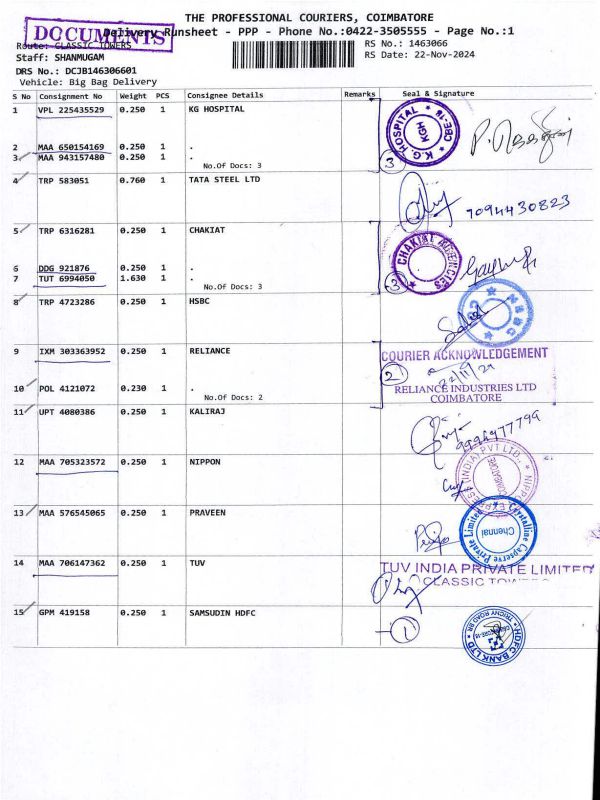 THE PROFESSIONAL COURIERS, COIMBATORE
DOCUMENTS
Delivery Runsheet - PPP - Phone No.:0422-3505555 - Page No.:1
Route: CLASSIC TOWERS
RS No.: 1463066
Staff: SHANMUGAM
RS Date: 22-Nov-2024
DRS No.: DCJB146306601
Vehicle: Big Bag Delivery
S No Consignment No Weight PCS Consignee Details Remarks Seal & Signature
1 VPL 225435529 0.250 1 KG HOSPITAL
2 MAA 650154169 0.250 1 .
3 MAA 943157480 0.250 1 .
No.Of Docs: 3
K.G. HOSPITAL
KGH
CBE-18
3
4 TRP 583051 0.760 1 TATA STEEL LTD
7094430823
5 TRP 6316281 0.250 1 CHAKIAT
6 DDG 921876 0.250 1 .
7 TUT 6994050 1.630 1 .
No.Of Docs: 3
CHAKIAT AGENCIES
3
8 TRP 4723286 0.250 1 HSBC
9 IXM 303363952 0.250 1 RELIANCE
10 POL 4121072 0.230 1 .
No.Of Docs: 2
COURIER ACKNOWLEDGEMENT
2
22/11/24
RELIANCE INDUSTRIES LTD
COIMBATORE
11 UPT 4080386 0.250 1 KALIRAJ
9994977799
12 MAA 705323572 0.250 1 NIPPON
COIMBATORE
13 MAA 576545065 0.250 1 PRAVEEN
Crystalline Caperve Private Limited
Chennai
14 MAA 706147362 1 0.250 TUV
TUV INDIA PRIVATE LIMITED
CLASSIC TOWERS
15 GPM 419158 0.250 1 SAMSUDIN HDFC
1
HDFC BANK LTD
TRICHY ROAD BR.